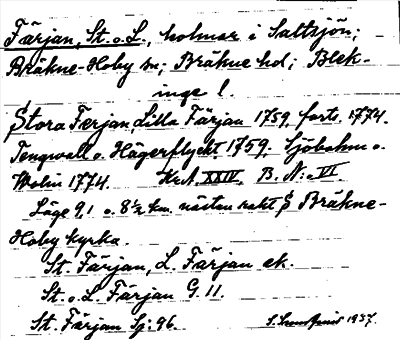 Färjan, St. o. L., holmar i Saltsjön;
Bräkne-Hoby sn; Bräkne hd; Blek-
inge l.
Stora Ferjan, Lilla Färjan 1759. forts. 1774.
Tengwall o. Hägerflycht 1759. Sjöbohm o.
Wolin 1774. Krt XXIV, B. N: o VI.
Läge 9,1 o. 8½ km. nästan rakt S Bräkne-
Hoby kyrka.
St. Färjan, L. Färjan ek.
St. o. L. Färjan G 11.
St. Färjan Sj: 96. 1937.